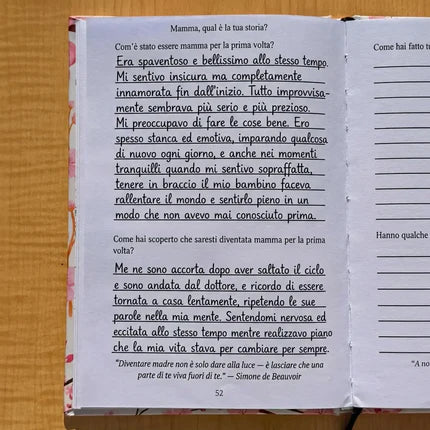 Mamma, qual è la tua storia?
Com'è stato essere mamma per la prima volta?
Era spaventoso e bellissimo allo stesso tempo.
Mi sentivo insicura ma completamente
innamorata fin dall'inizio. Tutto improvvisa-
mente sembrava più serio e più prezioso.
Mi preoccupavo di fare le cose bene. Ero
spesso stanca ed emotiva, imparando qualcosa
di nuovo ogni giorno, e anche nei momenti
tranquilli quando mi sentivo sopraffatta,
tenere in braccio il mio bambino faceva
rallentare il mondo e sentirlo pieno in un
modo che non avevo mai conosciuto prima.
Come hai scoperto che saresti diventata mamma per la prima
volta?
Me ne sono accorta dopo aver saltato il ciclo
e sono andata dal dottore, e ricordo di essere
tornata a casa lentamente, ripetendo le sue
parole nella mia mente. Sentendomi nervosa ed
eccitata allo stesso tempo mentre realizzavo piano
che la mia vita stava per cambiare per sempre.
"Diventare madre non è solo dare alla luce — è lasciare che una
parte di te viva fuori di te." — Simone de Beauvoir
52
Come hai fatto tu
Hanno qualche
"A no